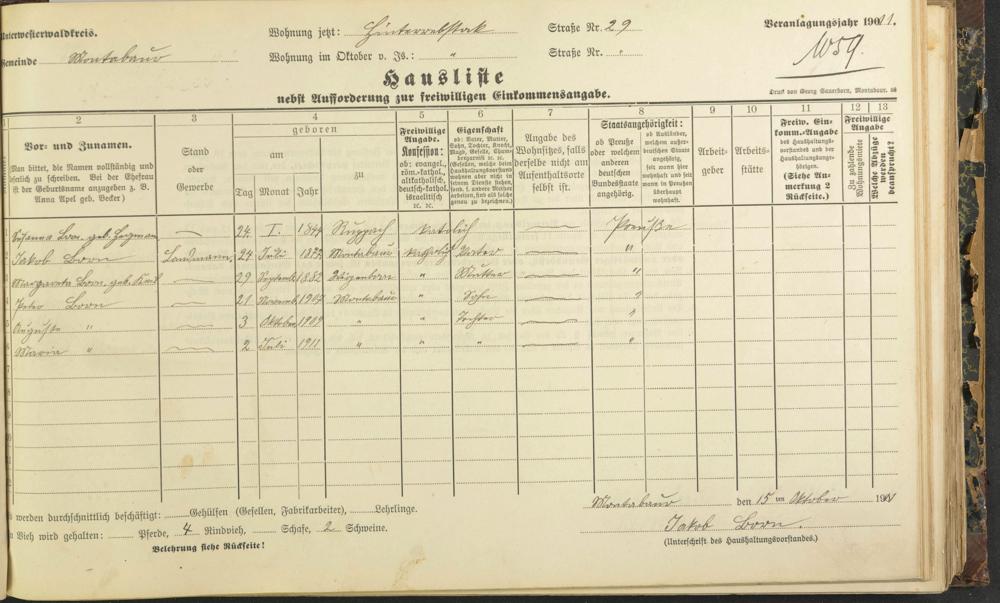 Unterwesterwaldkreis.
Gemeinde Montabaur
Wohnung jetzt: Hinterrebstock Straße Nr. 29
Wohnung im Oktober v. Js.: " Straße Nr. "
Veranlagungsjahr 1911.
1059.
Hausliste
nebst Aufforderung zur freiwilligen Einkommensangabe.
Druck von Georg Sauerborn, Montabaur.
2 3 4 5 6 7 8 9 10 11 12 13
Vor- und Zunamen.
Man bittet, die Namen vollständig und
deutlich zu schreiben. Bei der Ehefrau
ist der Geburtsname anzugeben z. B.
Anna Apel geb. Becker)
Stand
oder
Gewerbe
geboren
am
zu
Tag Monat Jahr
Freiwillige
Angabe.
Konfession:
ob: evangel.,
röm.-kathol.,
altkatholisch,
deutsch-kathol.
israelitisch
zc. zc.
Eigenschaft
ob: Vater, Mutter,
Sohn, Tochter, Knecht,
Magd, Geselle,
Angabe des
Wohnsitzes, falls
derselbe nicht am
Aufenthaltsorte
selbst ist.
Staatsangehörigkeit:
ob Preuße
oder welchem
anderen
deutschen
Bundesstaate
angehörig.
ob Ausländer,
welchem außer-
deutschen Staate
angehörig,
seit wann hier
wohnhaft und seit
wann in Preußen
überhaupt
wohnhaft.
Arbeit-
geber
Arbeits-
stätte
Freiw. Ein-
komm.-Angabe
des Haushaltungs-
vorstandes und der
Haushaltungsange-
hörigen.
(Siehe An-
merkung 2
Rückseite.)
Freiwillige
Angabe
Zu zahlende
Wohnungsmiete
Welche Abzüge
werden
beansprucht?
Susanna Born, geb. 24. I. 1844 Ruppach Katholisch Preuße
Jakob Born Landmann 24 Juli Montabaur Katholisch Vater "
Margareta Born, geb. 29 September 1882 " Mutter "
Peter Born 21 November 1907 Montabaur " Sohn "
Auguste " 3 Oktober 1909 " " Tochter "
Maria " 2 Juli 1911 " " " "
werden durchschnittlich beschäftigt: Gehülfen (Gesellen, Fabrikarbeiter), Lehrlinge.
Vieh wird gehalten: Pferde, 4 Rindvieh, Schafe, 2 Schweine.
Belehrung siehe Rückseite!
Montabaur den 15ten Oktober 1911
Jakob Born.
(Unterschrift des Haushaltungsvorstandes.)